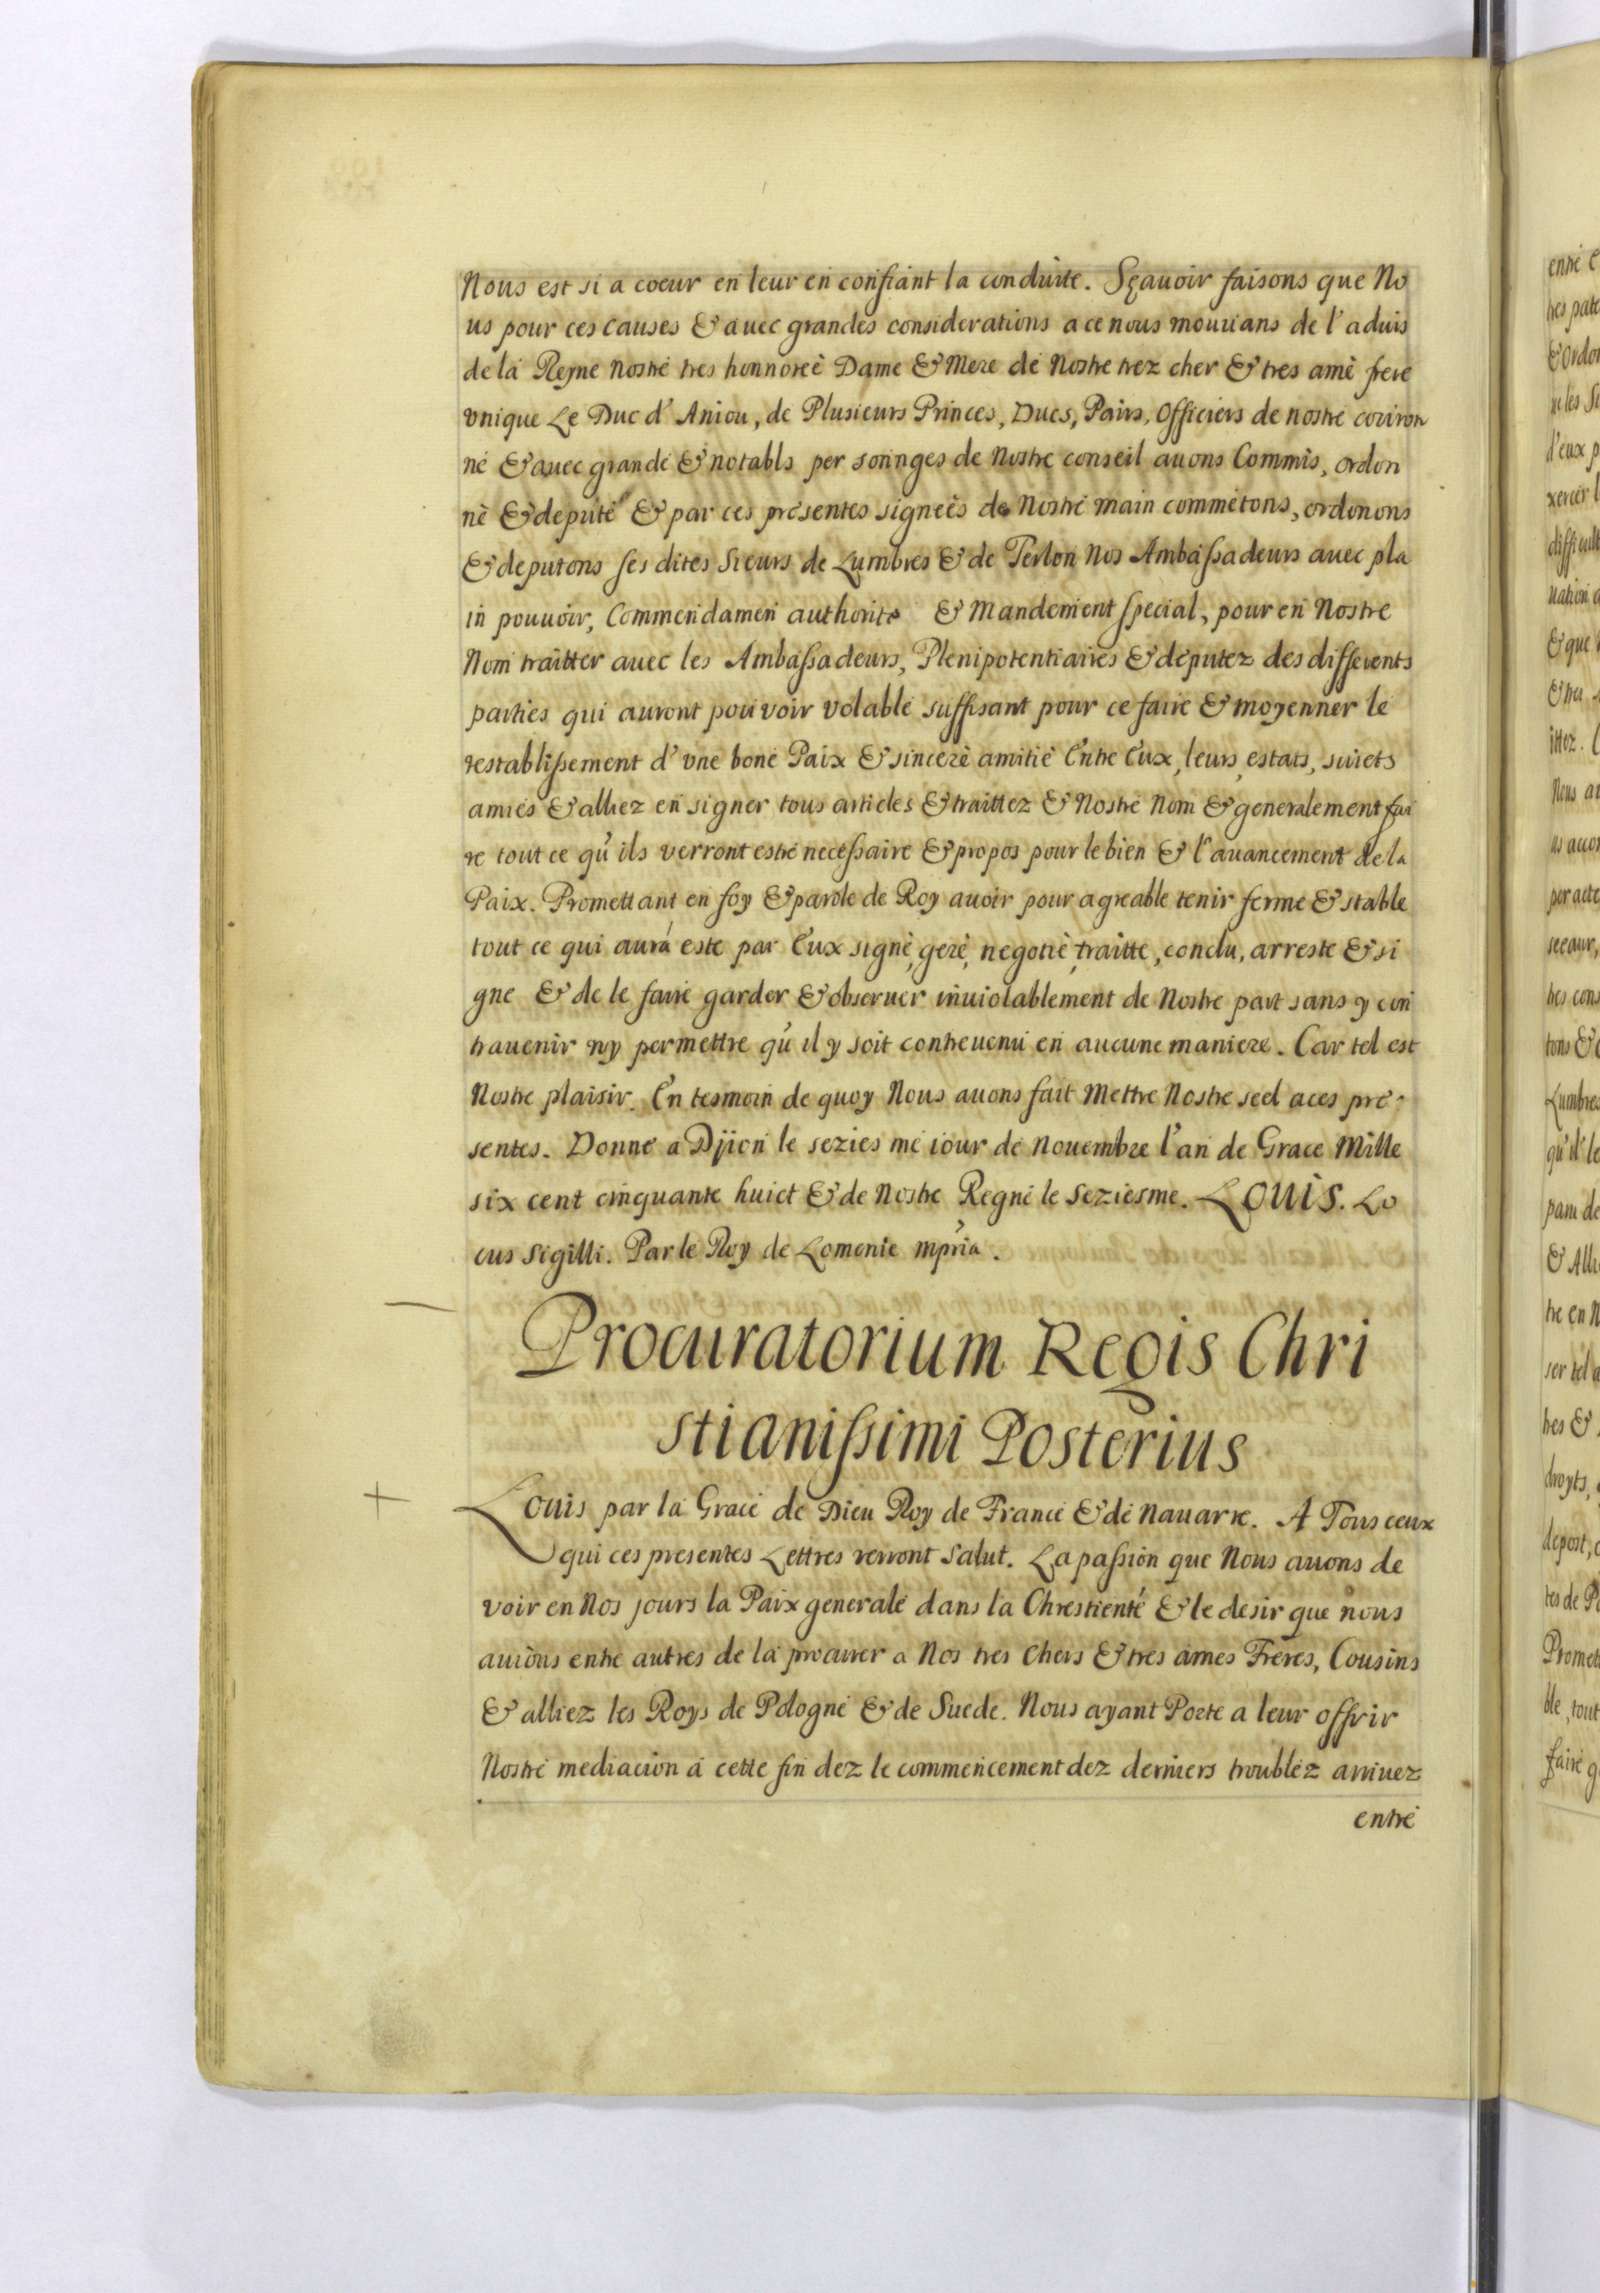 Nous est si a coeur en leur en confiant la conduite. Sçauoir faisons que No
us pour ces causes & auec grandes considerations a ce nous mouuans de l'aduis
de la Reyne nostre tres honnoreè Dame & Mere de Nostre trez cher & tres amè frere
vnique Le Duc d'Aniou, de Plusieurs Princes, Ducs, Pairs, Officiers de nostre couron
né & auec grande & notabls per sonnges de Nostre conseil auons Commis, ordon
nè & deputé & par ces presentes signeès de Nostre main commetons, ordonons
& deputons ses dites Sieurs de Lumbres & de Terlon Nos Ambassadeurs auec pla
in pouuoir, Commendamen authorite & Mandement special, pour en Nostre
Nom traitter auec les Ambassadeurs, Plenipotentiaires & deputez des differents
parties qui auront pouvoir volable suffisant pour ce faire & moyenner le
restablissement d'vne bone Paix & sincerè amitiè Entre Eux, leurs, estats, suiets
amiés & alliez en signer tous articles & traittez & Nostre Nom & generalement fai
re tout ce qu'ils verront estre necessaire & propos pour le bien & l'auancement de la
Paix. Promettant en foy & parole de Roy auoir pour agreable tenir ferme & stable
tout ce qui aurá este par Eux signè, gerè, negotiè, traitte, conclu, arreste & si
gne & de le faire garder & obseruer inuiolablement de Nostre part sans y con
trauenir ny permettre qu'il y soit contreuenu en aucune maniere. Car tel est
Nostre plaisir. En tesmoin de quoy Nous auons fait Mettre Nostre seel aces pre-
sentes. Donne a Djion le sezies me iour de Nouembre l'an de Grace Mille
six cent cinquante huict & de Nostre Regne le seziesme. LOUIS. Lo
cus sigilli. Par le Roy de Lomenie mpria.
Procuratorium Regis Chri
stianissimi Posterius
Louis par la Grace de Dieu Roy de France & de Nauarre. A Tous ceux
qui ces presentes Lettres verront salut. La passion que Nous auons de
voir en Nos jours la Paix generale dans la Chrestienté & le desir que nous
auions entre autres de la procurer a Nos tres Chers & tres ames Freres, Cousins
& alliez les Roys de Pologne & de Suede. Nous ayant Porte a leur offrir
Nostre mediacion a cette fin dez le commencement dez derniers troublez arriuez
entre